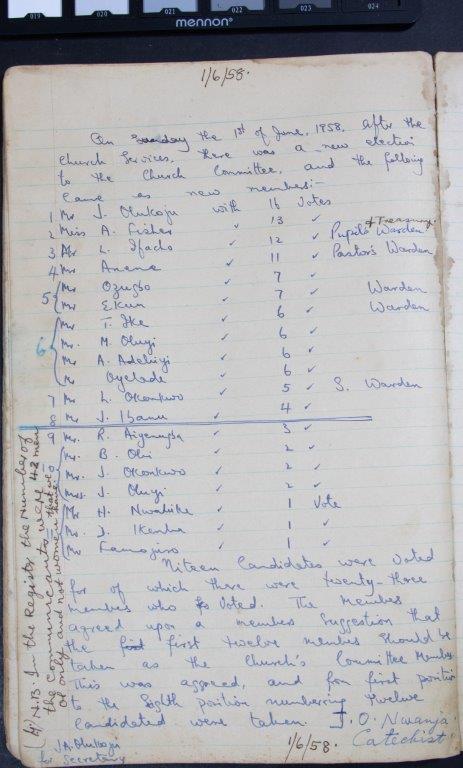 019 020 021 022 023 024
mennon
1/6/58.
On Sunday the 1st of June, 1958, after the
Church Services, there was a new election
to the Church Committee, and the following
came as new members:-
1 Mr J. Olukoju with 16 Votes
2 Miss A. Fisher ✓ 13 ✓ + Treasurer
3 Mr L. ✓ 12 ✓ Pupil's Warden
4 Mr Aneme ✓ 11 ✓ Pastor's Warden
5 Mr Ozugbo ✓ 7 ✓
Mr Ekun ✓ 7 ✓ Warden
6 Mr T. Ike ✓ 6 ✓ Warden
Mr. M. Oluyi ✓ 6 ✓
Mr A. Adebiyi ✓ 6 ✓
Mr Oyelade ✓ 6 ✓
7 Mr L. Okonkwo ✓ 5 ✓ S. Warden
8 Mr J. Ibanu ✓ 4 ✓
9 Mr. R. ✓ 3 ✓
Mr. B. Obi ✓ 2 ✓
Mr. J. Okonkwo ✓ 2 ✓
J. Oluyi ✓ 2 ✓
Mr H. Nwabike ✓ 1 Vote
Mr. J. Ikenha ✓ 1 ✓
Mr ✓ 1 ✓
Niteen Candidates were voted
for of which there were twenty-three
members who voted. The members
agreed upon a members suggestion that
the first first twelve members should be
taken as the Church's Committee Members
This was aggreed, and for first position
to the Eighth position numbering twelve
candidated were taken. J. O. Nwanja
1/6/58. Catechist
J.A. Olukoju
for Secretary
(4) N.B. In the Register the number of
the communicants were 42 men
only and not women